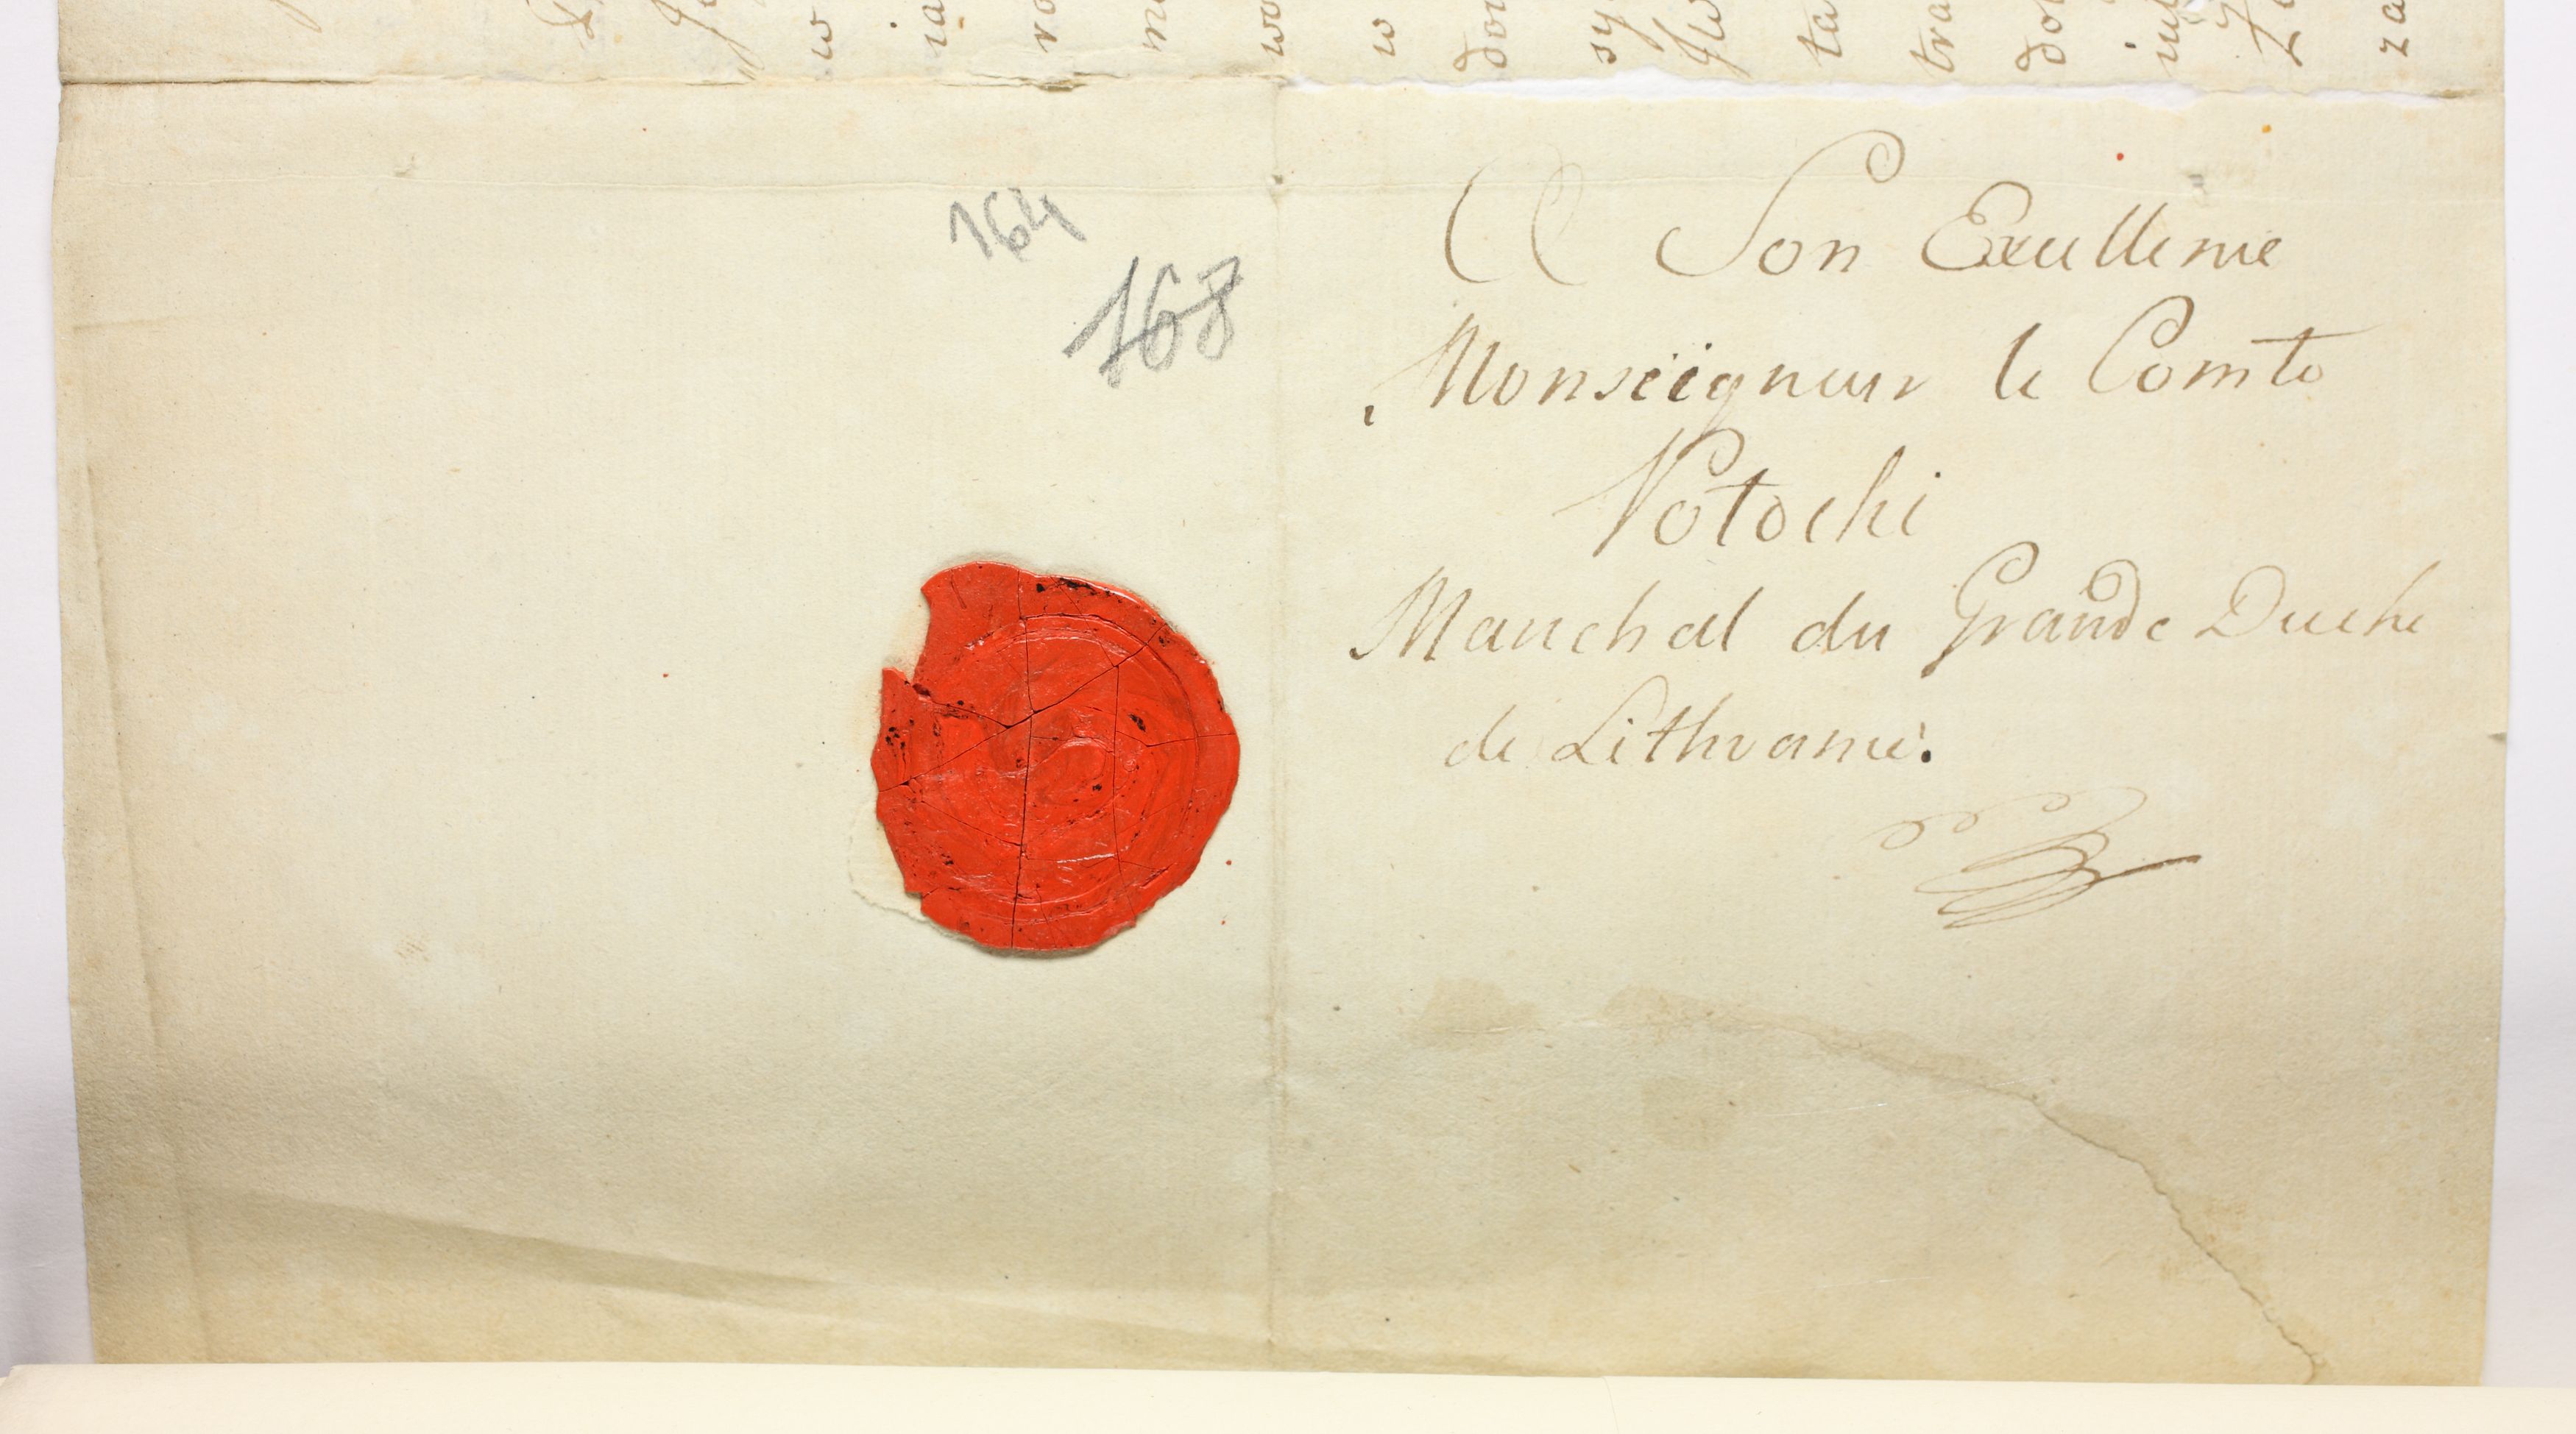 164
168
A Son Excellence
Monseigneur le Comte
Potocki
Marechal du Grande Duche
de Lithvanie.